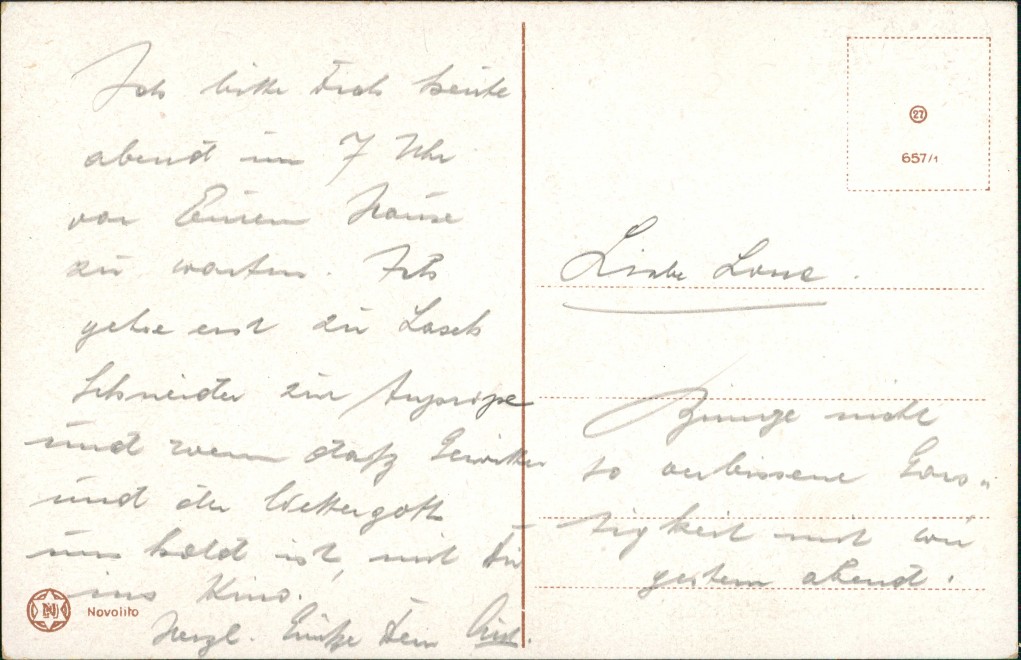 Ich bitte Dich heute
abend um 7 Uhr
vor Eurem Hause
zu warten. Ich
gehe erst zu
Schneider zur Anprobe
und wenn das Gewitter
und der Wettergott
uns hold ist, mit Dir
ins Kino.
Herzl. Grüße Dein
27
657/1
Liebe Lone.
Bringe nicht
so verbissene Gars-
tigkeit mit wie
gestern abend.
N
Novolito